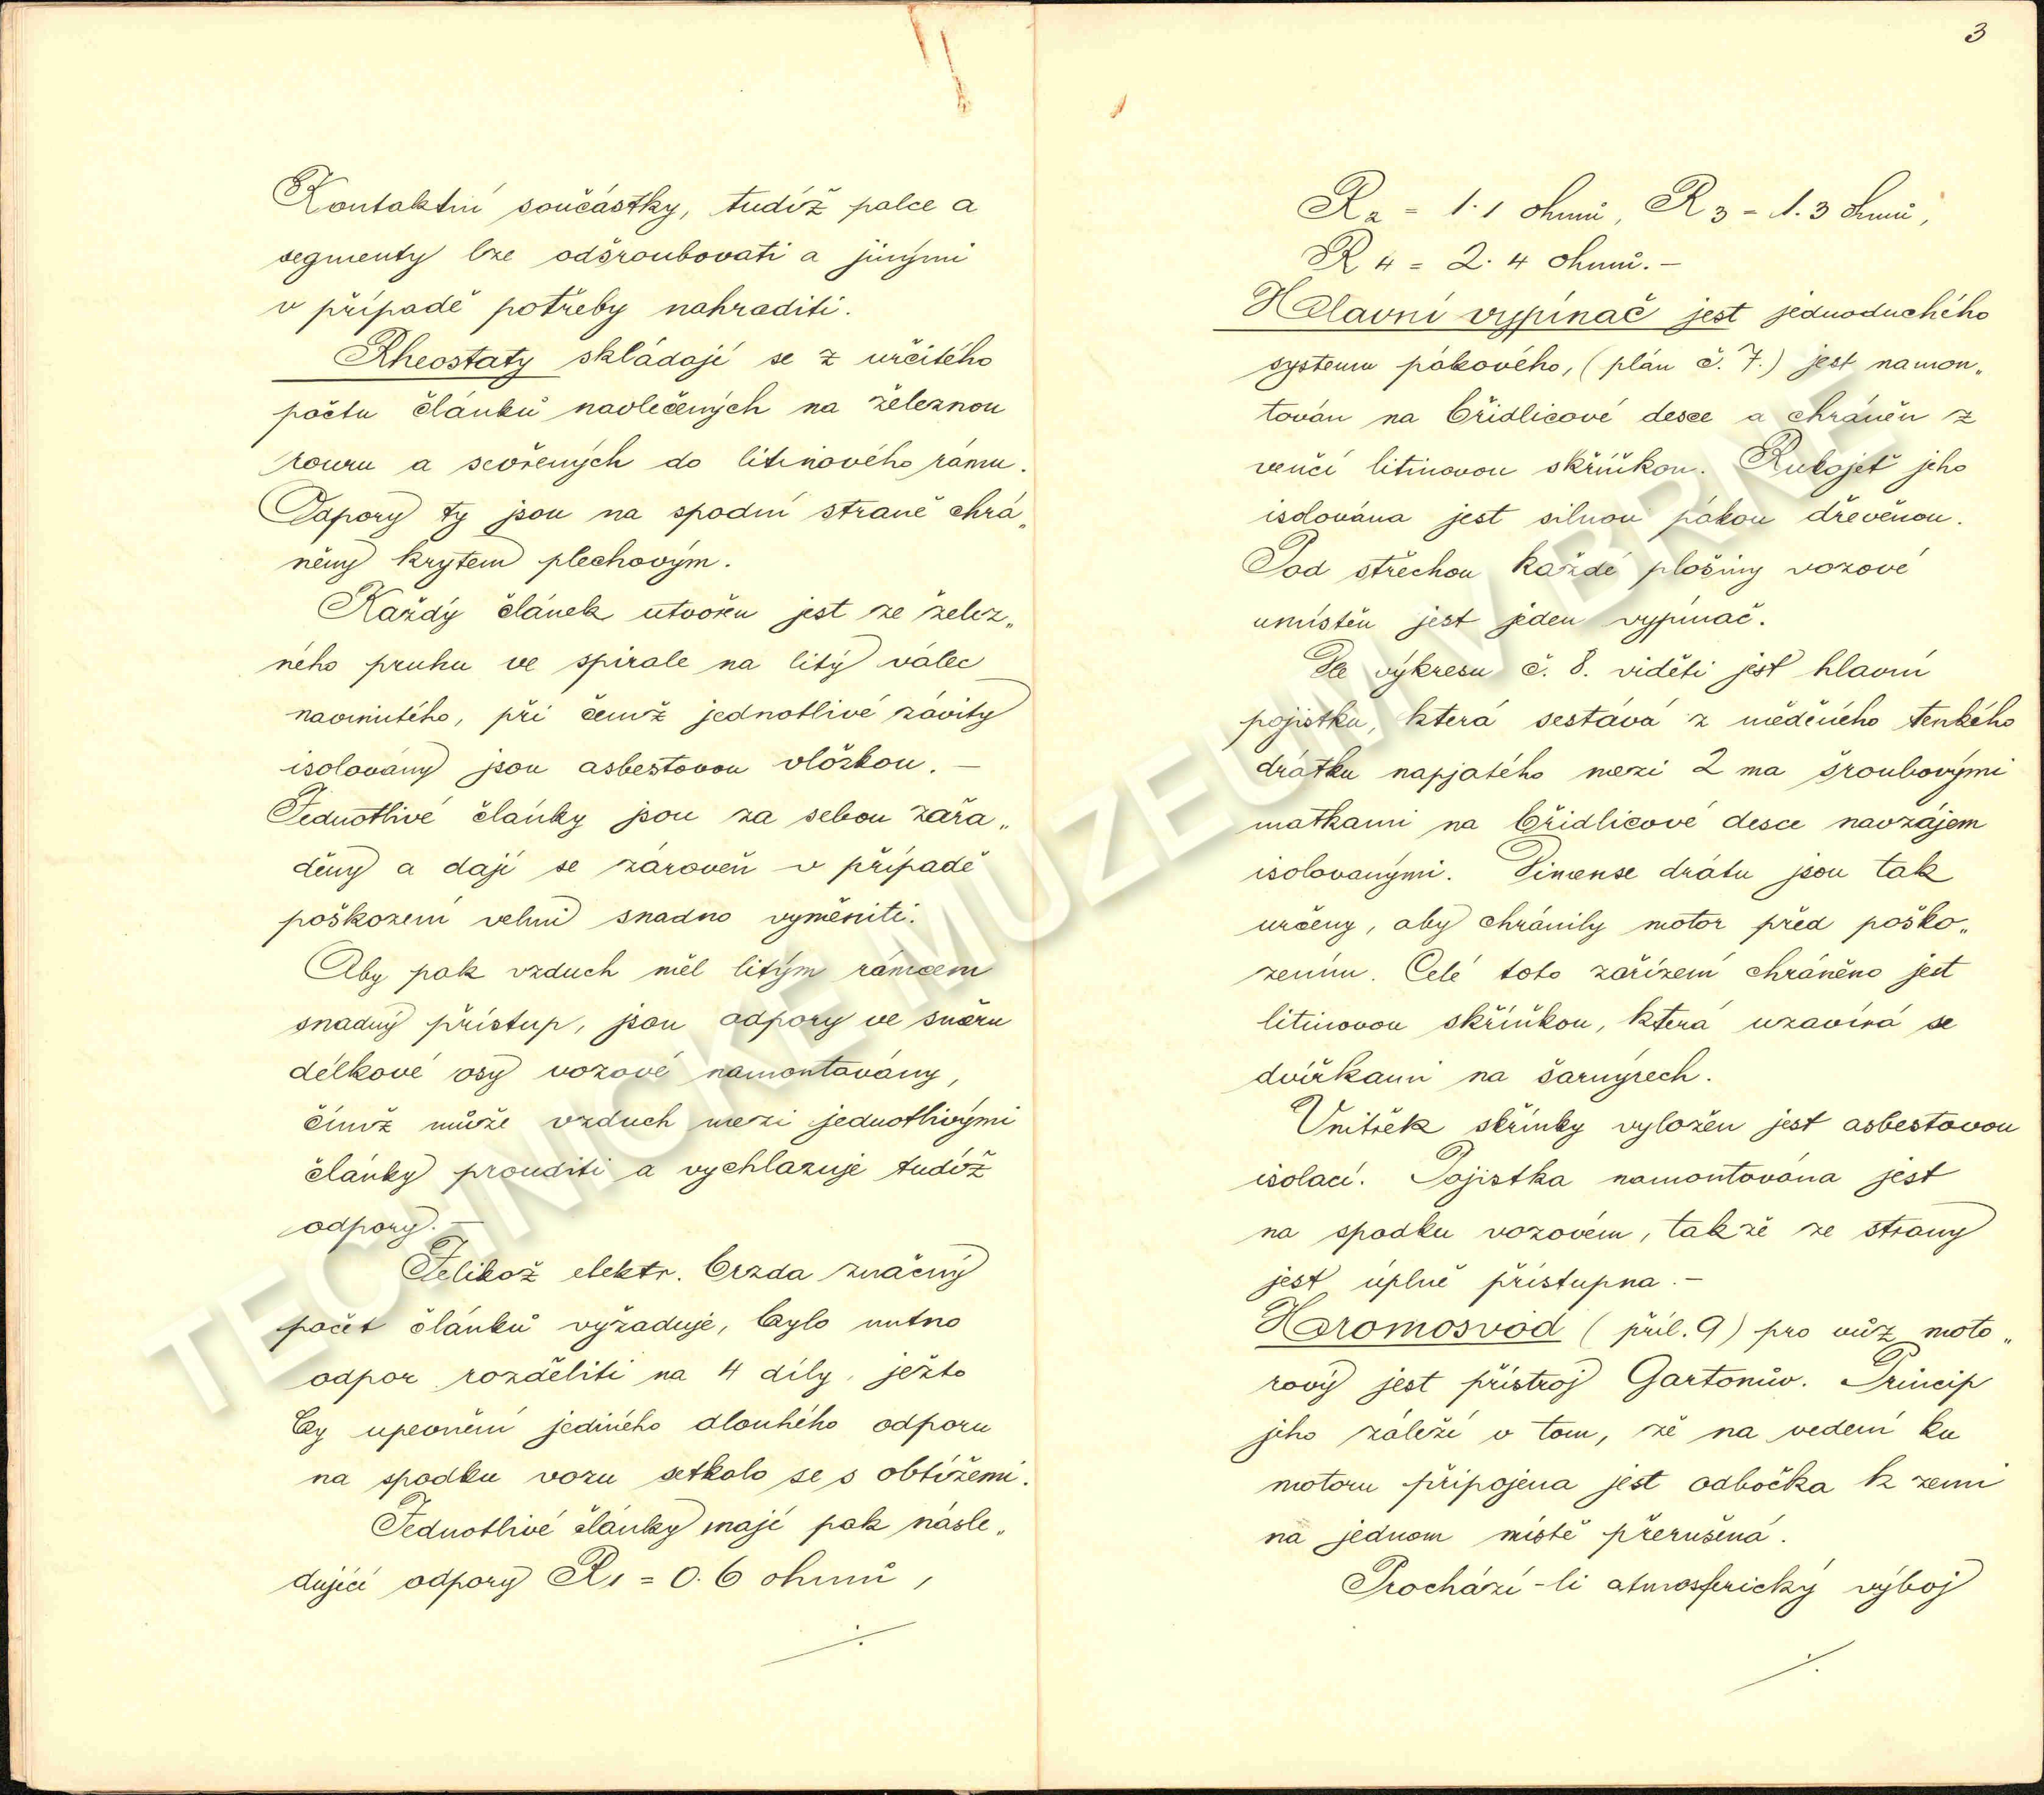 Kontaktní součástky, tudíž palce a
segmenty lze odšroubovati a jinými
v případě potřeby nahraditi.
Rheostaty skládají se z určitého
počtu článků navlečených na železnou
rouru a sevřených do litinového rámu.
Odpory ty jsou na spodní straně chrá„
něny krytem plechovým.
Každý článek utvořen jest ze želez„
ného pruhu ve spirale na litý válec
navinutého, při čemž jednotlivé závity
isolovány jsou asbestovou vložkou. –
Jednotlivé články jsou za sebou zařa„
děny a dají se zároveň v případě
poškození velmi snadno vyměniti.
Aby pak vzduch měl litým rámcem
snadný přístup, jsou odpory ve směru
délkové osy vozové namontovány,
čímž může vzduch mezi jednotlivými
články prouditi a vychlazuje tudíž
odpory. –
Jelikož elektr. brzda značný
počet článků vyžaduje, bylo nutno
odpor rozděliti na 4 díly, ježto
by upevnění jediného dlouhého odporu
na spodku vozu setkalo se s obtížemi.
Jednotlivé články mají pak násle„
dující odpory R1 = 0.6 ohmů,
./.
3
R2 = 1.1 ohmů, R3 = 1.3 ohmů,
R4 = 2.4 ohmů. –
Hlavní vypínač jest jednoduchého
systemu pákového, (plán č. 7.) jest namon„
tován na břidlicové desce a chráněn z
venčí litinovou skříňkou. Rukojeť jeho
isolována jest silnou pákou dřevěnou.
Pod střechou každé plošiny vozové
umístěn jest jeden vypínač.
Dle výkresu č. 8. viděti jest hlavní
pojistku, která sestává z měděného tenkého
drátku napjatého mezi 2 ma šroubovými
matkami na břidlicové desce navzájem
isolovanými. Dimense drátu jsou tak
určeny, aby chránily motor před poško„
zením. Celé toto zařízení chráněno jest
litinovou skříňkou, která uzavírá se
dvířkami na šarnýrech.
Vnitřek skřínky vyložen jest asbestovou
isolací. Pojistka namontována jest
na spodku vozovém, takže ze strany
jest úplně přístupna. –
Hromosvod (příl. 9) pro vůz moto„
rový jest přístroj Gartonův. Princip
jeho záleží v tom, že na vedení ku
motoru připojena jest odbočka k zemi
na jednom místě přerušená.
Prochází-li atmosferický výboj
./.
TECHNICKÉ MUZEUM V BRNĚ